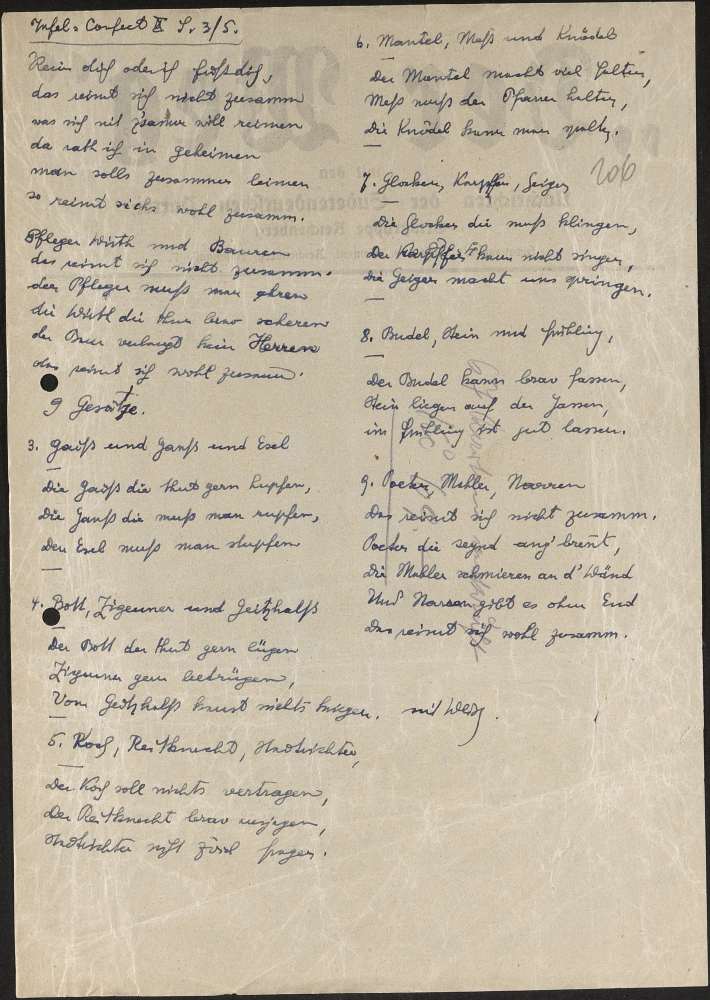 Tafel-Confect II S. 3/5.
Reim dich oder ich friß dich,
das reimt sich nicht zusamm
was sich nit zsamm will reimen
da rath ich in geheimen
man solls zusammen leimen
so reimt sichs wohl zusamm.
Pfleger Wirth und Bauren
das reimt sich nicht zusamm.
den Pfleger muß man ehren
die Wirth die thun brav scheren
der Baur verlangt kein Herren
das reimt sich wohl zusamm.
9 Gesätze.
3. Gaiß und Ganß und Esel
Die Gaiß die thut gern hupfen,
Die Ganß die muß man rupfen,
Den Esel muß man stupfen
4. Bott, Zigeuner und Geitzhalß
Der Bott der thut gern lügen
Zigeuner gern betrügen,
Vom Geitzhalß kannst nichts kriegen.
5. Koch, Reitknecht, Stadtrichter,
Der Koch soll nichts vertragen,
Der Reitknecht brav
Stadtrichter nicht zviel fragen.
6. Mantel, Meß und Knödel
Der Mantel macht viel Falten,
Meß muß der Pfarrer halten,
Die Knödel kann man spalten.
206
7. Glocken, Karpffen, Geigen
Die Glocken die muß klingen,
Der Karpffen kann nicht singen,
Die Geigen macht uns springen.
8. Budel, Stein und Frühling,
Der Budel kann brav fassen,
Stein liegen auf der Gassen,
im Frühling ist gut lassen.
9. Poeten, Mahler, Narren
Das reimt sich nicht zusamm.
Poeten die seynd ang'brent,
Die Mahler schmieren an d'Wänd
Und Narren gibt es ohne End
Das reimt sich wohl zusamm.
mit Weis.